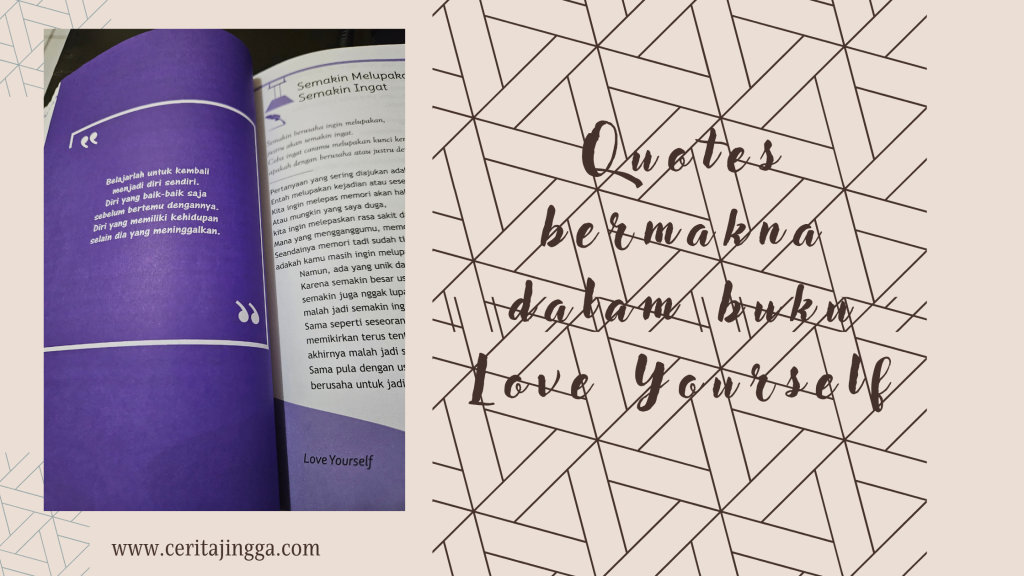 Belajarlah untuk kembali
menjadi diri sendiri.
Diri yang baik-baik saja
sebelum bertemu dengannya.
Diri yang memiliki kehidupan
selain dia yang meninggalkan.
Semakin Melupaka
Semakin Ingat
Semakin berusaha ingin melupakan,
akan semakin ingat.
ingat caramu melupakan kunci ker
apakah dengan berusaha atau justru de
Pertanyaan yang sering diajukan ada
Entah melupakan kejadian atau sese
Kita ingin melepas memori akan ha
Atau mungkin yang saya duga,
kita ingin melepaskan rasa sakit d
Mana yang mengganggumu, memo
Seandainya memori tadi sudah ti
adakah kamu masih ingin melup
Namun, ada yang unik da
Karena semakin besar us
semakin juga nggak lupa
malah jadi semakin ing
Sama seperti seseoran
memikirkan terus tent
akhirnya malah jadi s
Sama pula dengan us
berusaha untuk jadi
Love Yourself
www.ceritajingga.com
Quotes
bermakna
dalam buku
Love Yourself